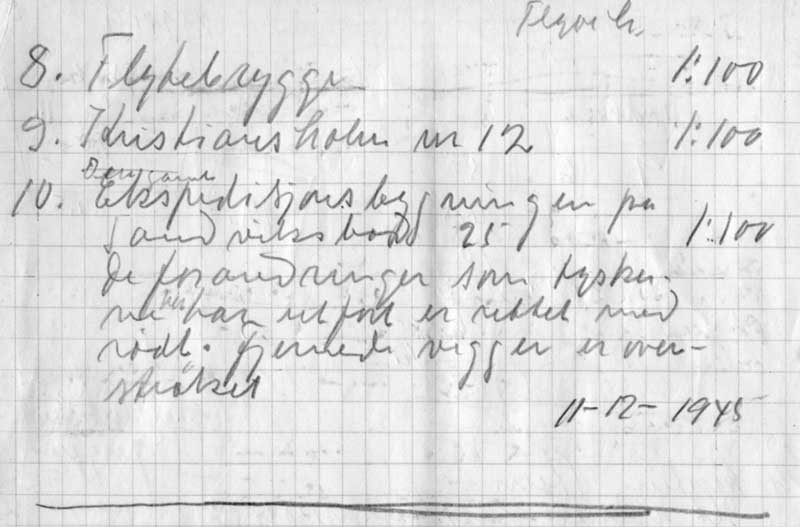 8. Flytebrygge 1:100
9. Kristiansholm nr 12 1:100
Den gamle
10. Ekspedisjonsbygningen på
Sandviksbod 25 1:100
de forandringer som tysker-
ne har utført er rettet med
rødt. fjernede vegger er over-
strøket
11-12-1945